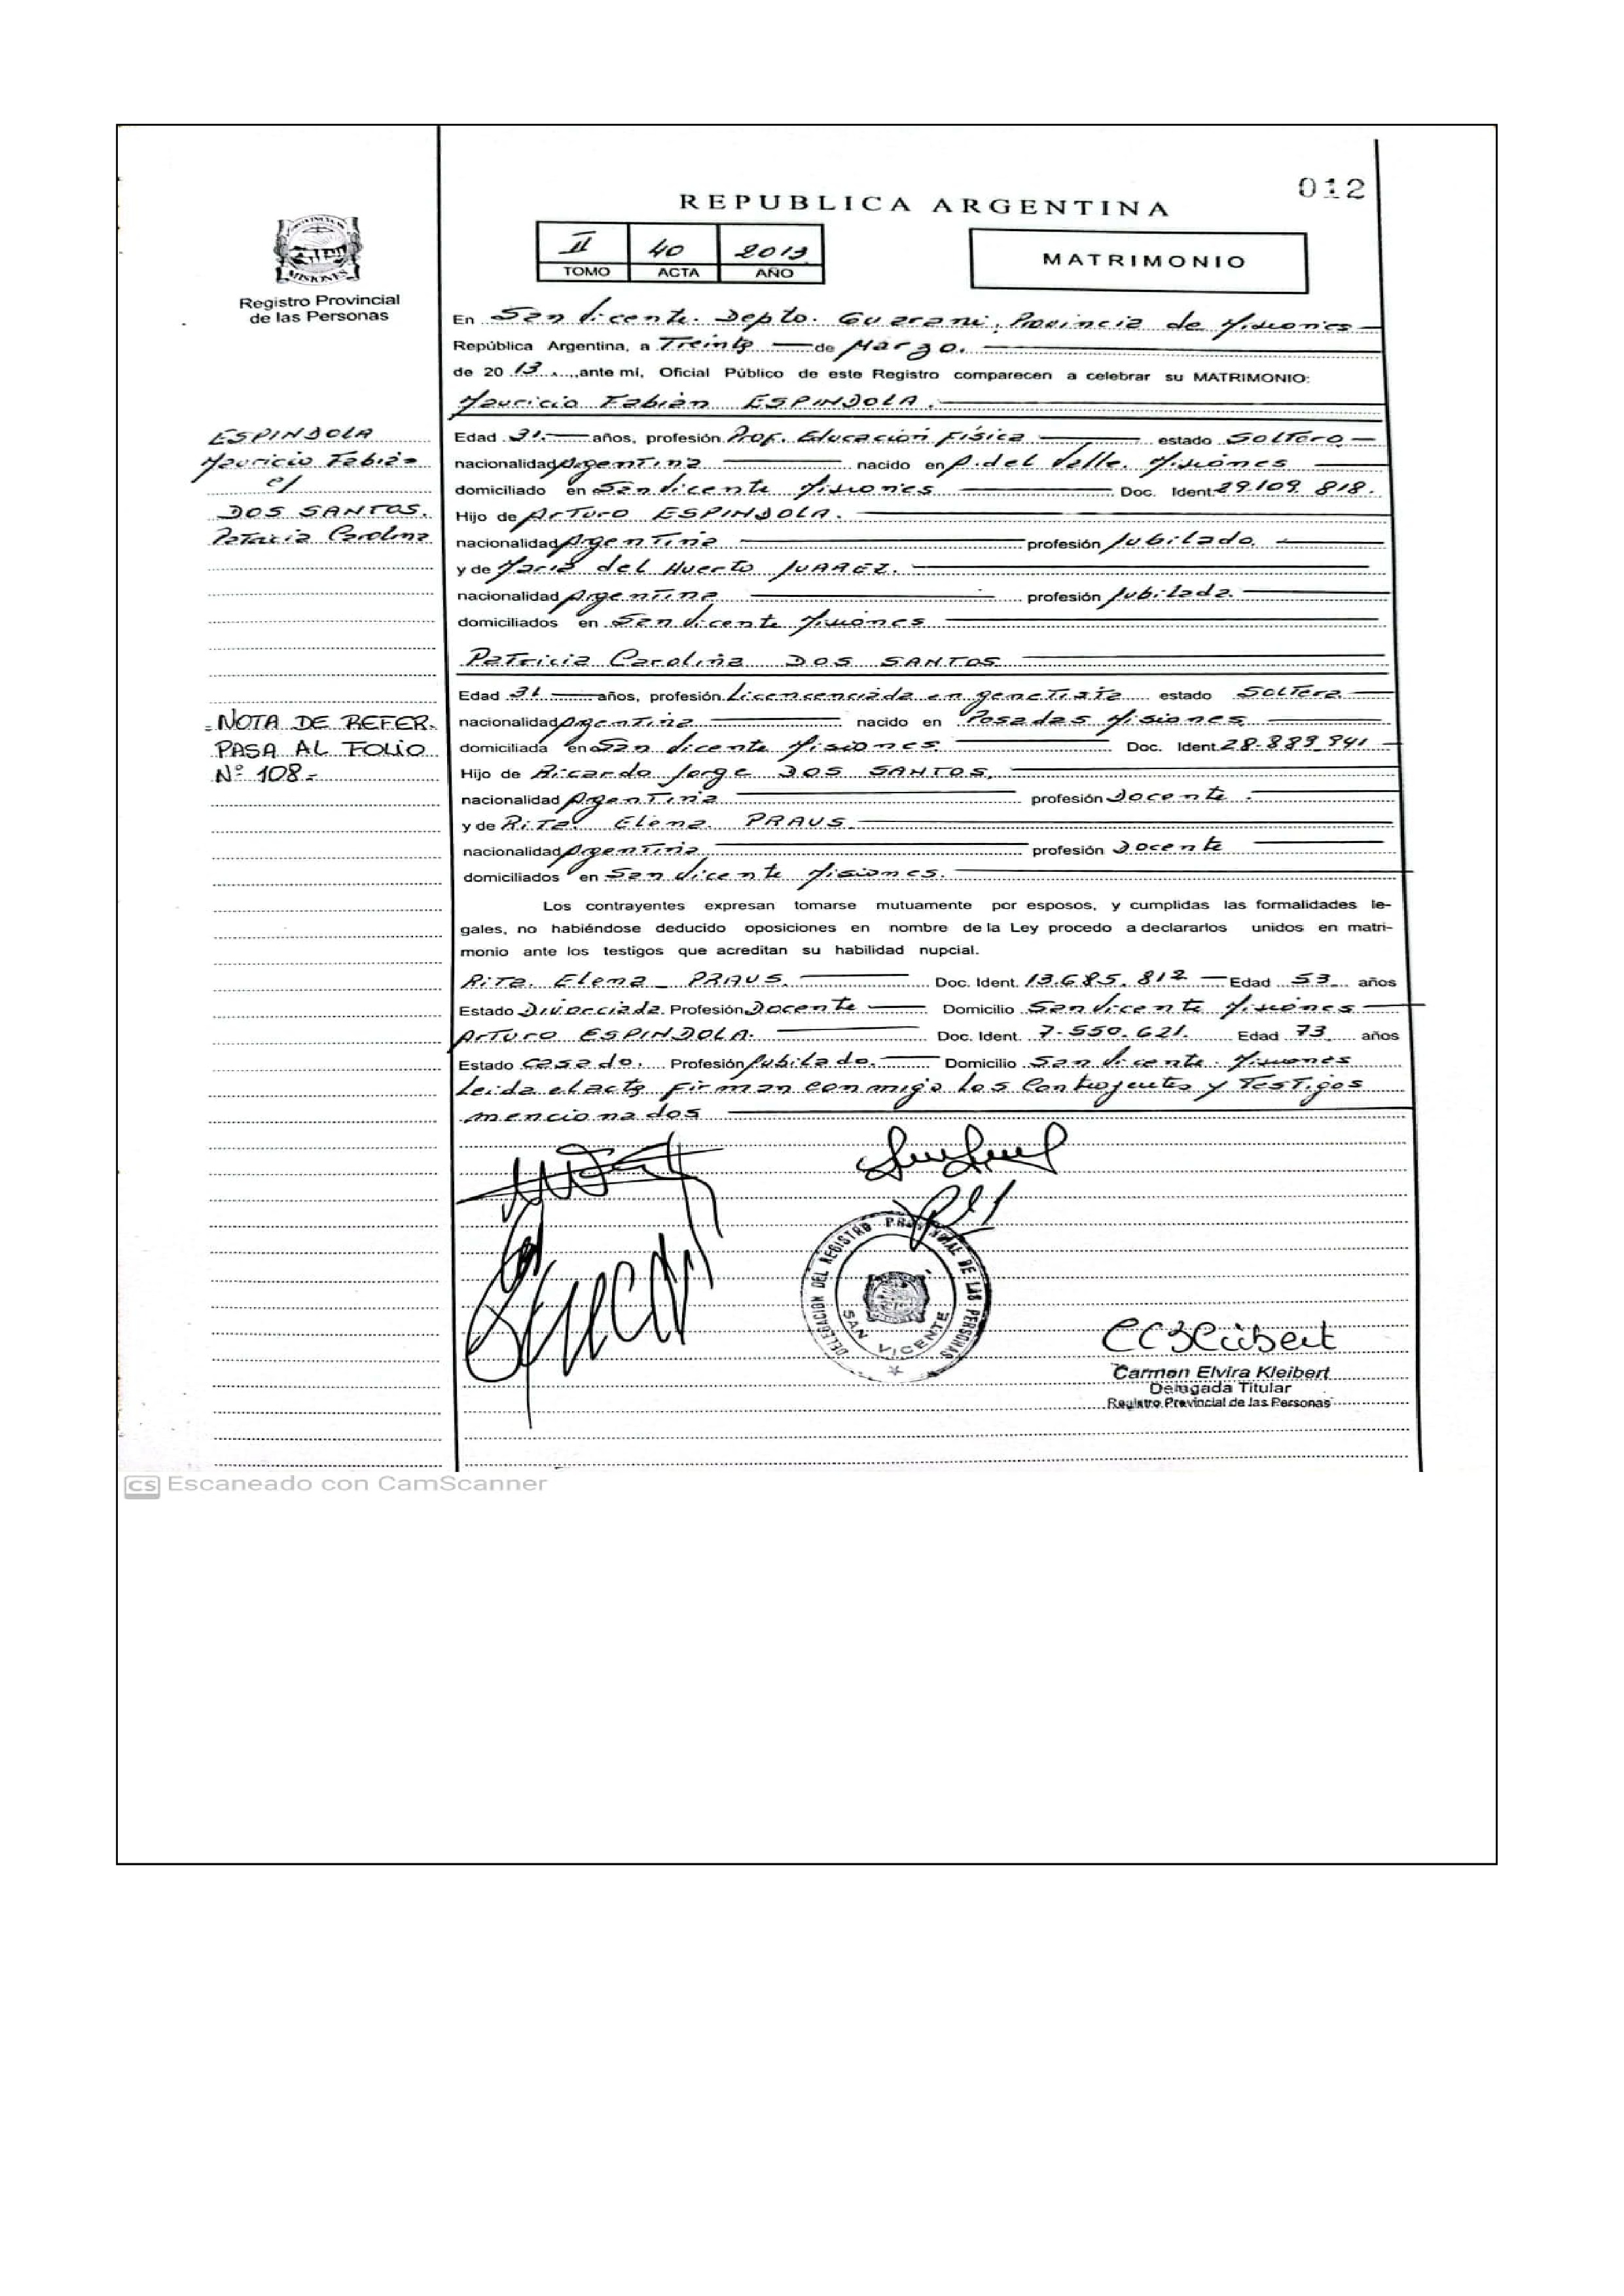 012
REPUBLICA ARGENTINA
II 40 2013
TOMO ACTA AÑO
MATRIMONIO
MISIONES
Registro Provincial
de las Personas
En San Vicente. Depto. Guarani, Provincia de Misiones
República Argentina, a Treinta de Marzo.
de 20 13 ,ante mí, Oficial Público de este Registro comparecen a celebrar su MATRIMONIO:
Mauricio Fabián ESPINDOLA.
ESPINDOLA
Mauricio Fabián
c/
DOS SANTOS.
Patricia Carolina
Edad 31. años, profesión Prof. Educación Física estado Soltero
nacionalidad Argentina nacido en A. del Valle. Misiones
domiciliado en San Vicente Misiones Doc. Ident. 29.109.818.
Hijo de Arturo ESPINDOLA.
nacionalidad Argentina profesión Jubilado
y de Maria del Huerto JUAREZ.
nacionalidad Argentina profesión Jubilada.
domiciliados en San Vicente Misiones
Patricia Carolina DOS SANTOS
Edad 31 años, profesión Licencenciada en genetista estado Soltera
nacionalidad Argentina nacido en Posadas Misiones
domiciliada en San Vicente Misiones Doc. Ident. 28.889.941
Hijo de Ricardo Jorge DOS SANTOS.
nacionalidad Argentina profesión Docente.
y de Rita Elena PRAUS
nacionalidad Argentina profesión Docente
domiciliados en San Vicente Misiones.
NOTA DE REFER.
PASA AL FOLIO
Nº 108-
Los contrayentes expresan tomarse mutuamente por esposos, y cumplidas las formalidades le-
gales, no habiéndose deducido oposiciones en nombre de la Ley procedo a declararlos unidos en matri-
monio ante los testigos que acreditan su habilidad nupcial.
Rita Elena PRAUS. Doc. Ident. 13.685.812 Edad 53 años
Estado Divorciada Profesión Docente Domicilio San Vicente Misiones
Arturo ESPINDOLA. Doc. Ident. 7.550.621. Edad 73 años
Estado Casado. Profesión Jubilado. Domicilio San Vicente. Misiones
Leida el acta firman conmigo los Contrayentes y Testigos
mencionados
DELEGACION DEL REGISTRO PROVINCIAL DE LAS PERSONAS
SAN VICENTE
Carmen Elvira Kleibert
Delegada Titular
Registro Provincial de las Personas
CS Escaneado con CamScanner